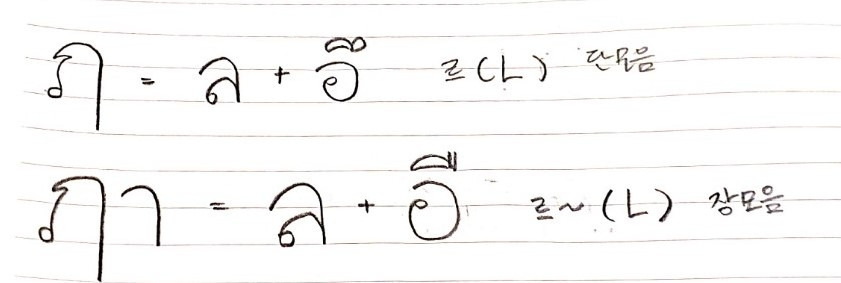 ฦ = ล + อึ 르(L) 단모음
ฦา = ล + อื 르~(L) 장모음